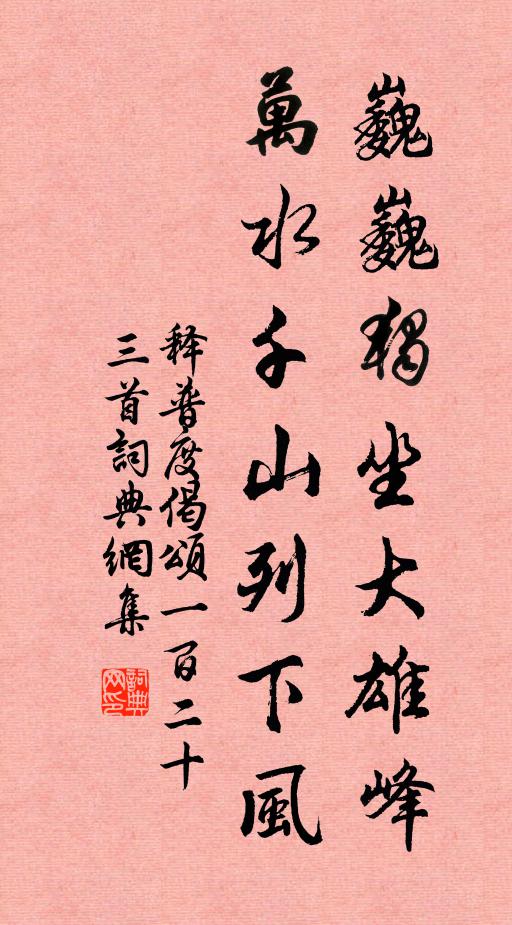 巍巍獨坐大雄峰
萬水千山列下風
释普度偈頌一百二十
三首詞典網集
詞典网印